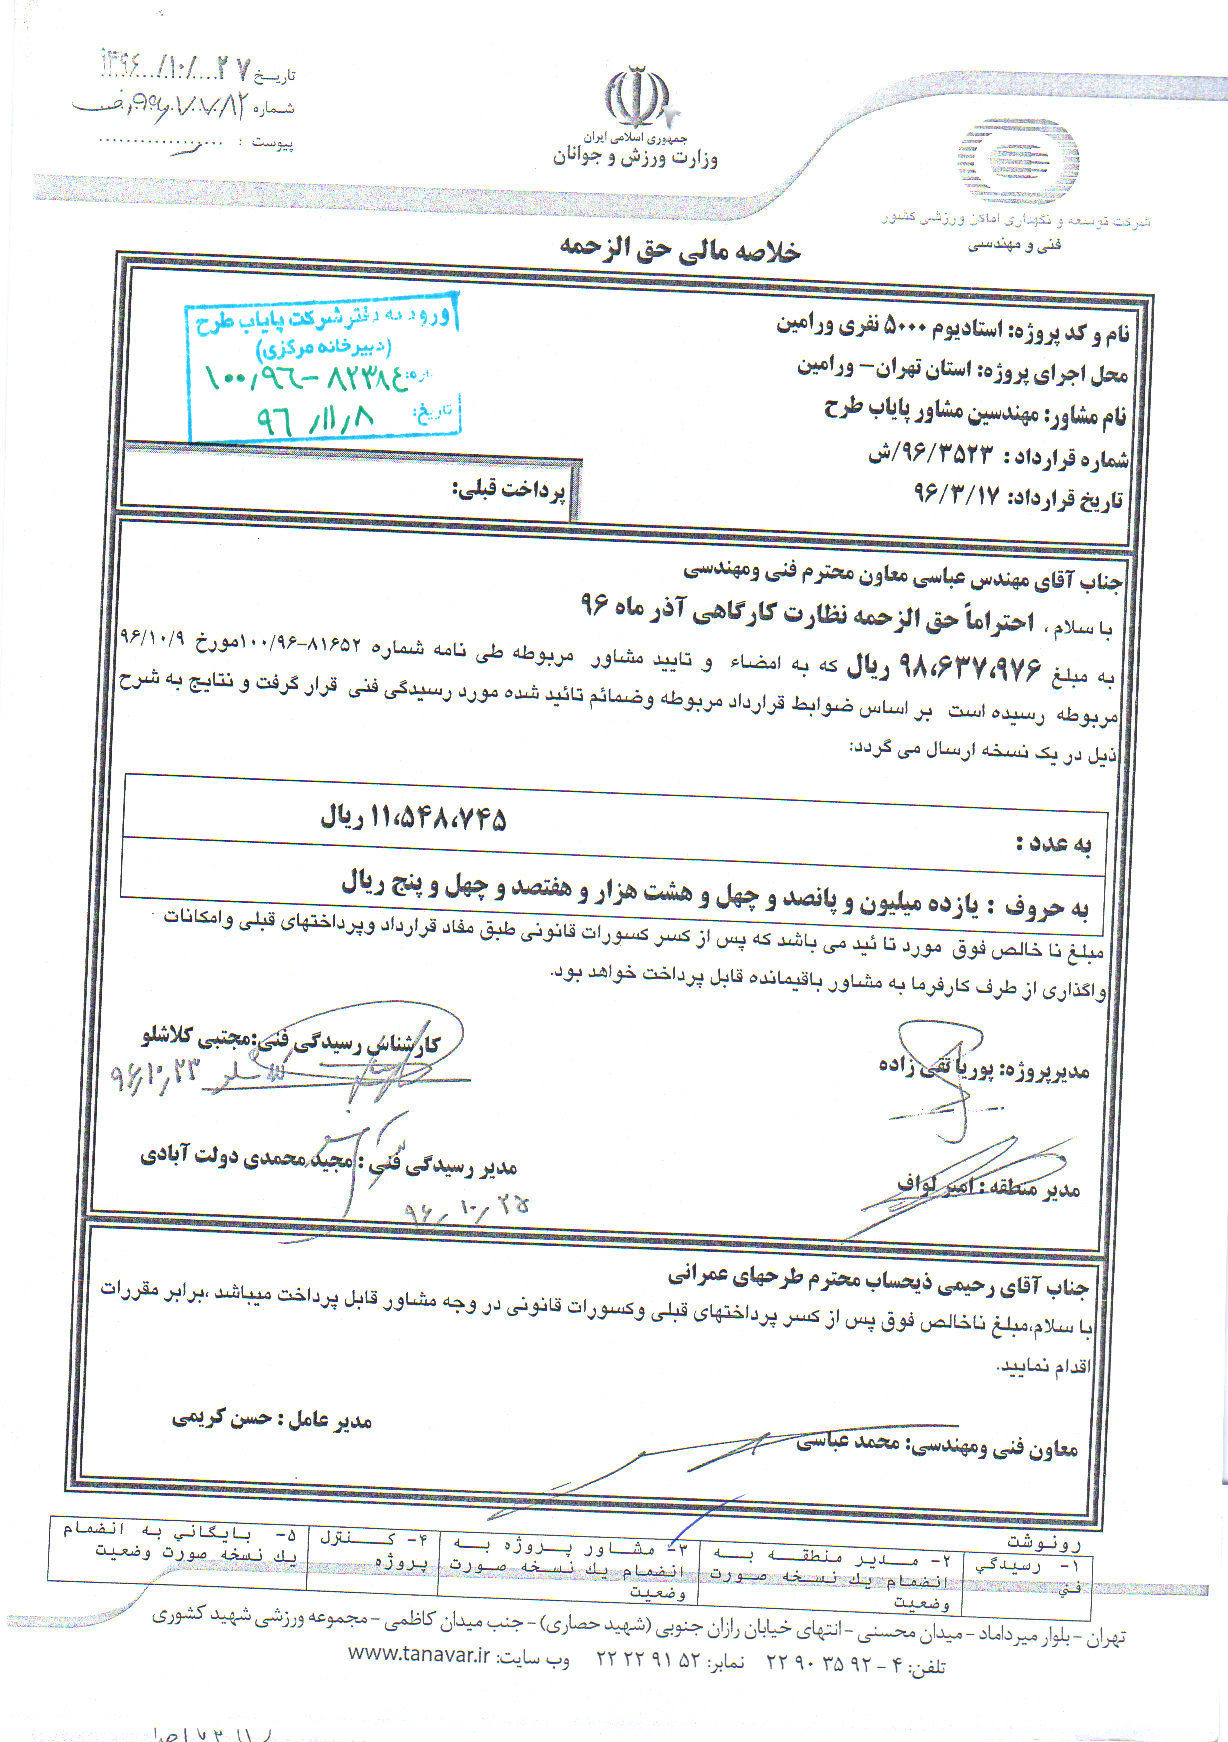 تاریخ ۱۳۹۶/۱۰/۲۷
شماره
پیوست :
جمهوری اسلامی ایران
وزارت ورزش و جوانان
شرکت توسعه و نگهداری اماکن ورزشی کشور
فنی و مهندسی
خلاصه مالی حق الزحمه
ورود به دفتر شرکت پایاب طرح
(دبیرخانه مرکزی)
۱۰۰/۹۶-۸۲۳۸۴
تاریخ: ۹۶/۱۱/۸
نام و کد پروژه: استادیوم ۵۰۰۰ نفری ورامین
محل اجرای پروژه: استان تهران– ورامین
نام مشاور: مهندسین مشاور پایاب طرح
شماره قرارداد : ۹۶/۳۵۲۳/ش
تاریخ قرارداد: ۹۶/۳/۱۷
پرداخت قبلی:
جناب آقای مهندس عباسی معاون محترم فنی ومهندسی
با سلام ، احتراماً حق الزحمه نظارت کارگاهی آذر ماه ۹۶
به مبلغ ۹۸،۶۳۷،۹۷۶ ریال که به امضاء و تایید مشاور مربوطه طی نامه شماره ۸۱۶۵۲-۱۰۰/۹۶مورخ ۹۶/۱۰/۹
مربوطه رسیده است بر اساس ضوابط قرارداد مربوطه وضمائم تائید شده مورد رسیدگی فنی قرار گرفت و نتایج به شرح
ذیل در یک نسخه ارسال می گردد:
به عدد : ۱۱،۵۴۸،۷۴۵ ریال
به حروف : یازده میلیون و پانصد و چهل و هشت هزار و هفتصد و چهل و پنج ریال
مبلغ نا خالص فوق مورد تا ئید می باشد که پس از کسر کسورات قانونی طبق مفاد قرارداد وپرداختهای قبلی وامکانات
واگذاری از طرف کارفرما به مشاور باقیمانده قابل پرداخت خواهد بود.
مدیرپروژه: پوریا تقی زاده
کارشناس رسیدگی فنی:مجتبی کلاشلو
۹۶/۱۰/۲۳
مدیر منطقه : امیر لواف
مدیر رسیدگی فنی : مجید محمدی دولت آبادی
۹۶/۱۰/۲۵
جناب آقای رحیمی ذیحساب محترم طرحهای عمرانی
با سلام،مبلغ ناخالص فوق پس از کسر پرداختهای قبلی وکسورات قانونی در وجه مشاور قابل پرداخت میباشد ،برابر مقررات
اقدام نمایید.
معاون فنی ومهندسی: محمد عباسی
مدیر عامل : حسن کریمی
رونوشت
۱- رسیدگي فني
۲- مدیر منطقه به انضمام یك نسخه صورت وضعیت
۳- مشاور پروژه به انضمام یك نسخه صورت وضعیت
۴- کنترل پروژه
۵- بایگاني به انضمام یك نسخه صورت وضعیت
تهران –بلوار میرداماد – میدان محسنی – انتهای خیابان رازان جنوبی (شهید حصاری) – جنب میدان کاظمی – مجموعه ورزشی شهید کشوری
تلفن: ۴ – ۹۲ ۳۵ ۹۰ ۲۲ نمابر: ۵۲ ۹۱ ۲۲ ۲۲ وب سایت: www.tanavar.ir